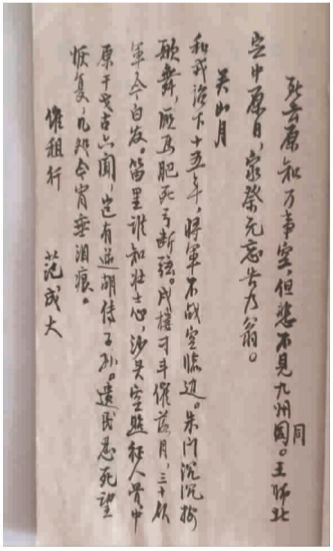 死去原知万事空,但悲不见九州同。王师北
定中原日,家祭无忘告乃翁。
关山月
和戎诏下十五年,将军不战空临边。朱门沉沉按
歌舞,厩马肥死弓断弦。戍楼刁斗催落月,三十从
军今白发。笛里谁知壮士心,沙头空照征人骨。中
原干戈古亦闻,岂有逆胡传子孙。遗民忍死望
恢复,几处今宵垂泪痕。
催租行 范成大